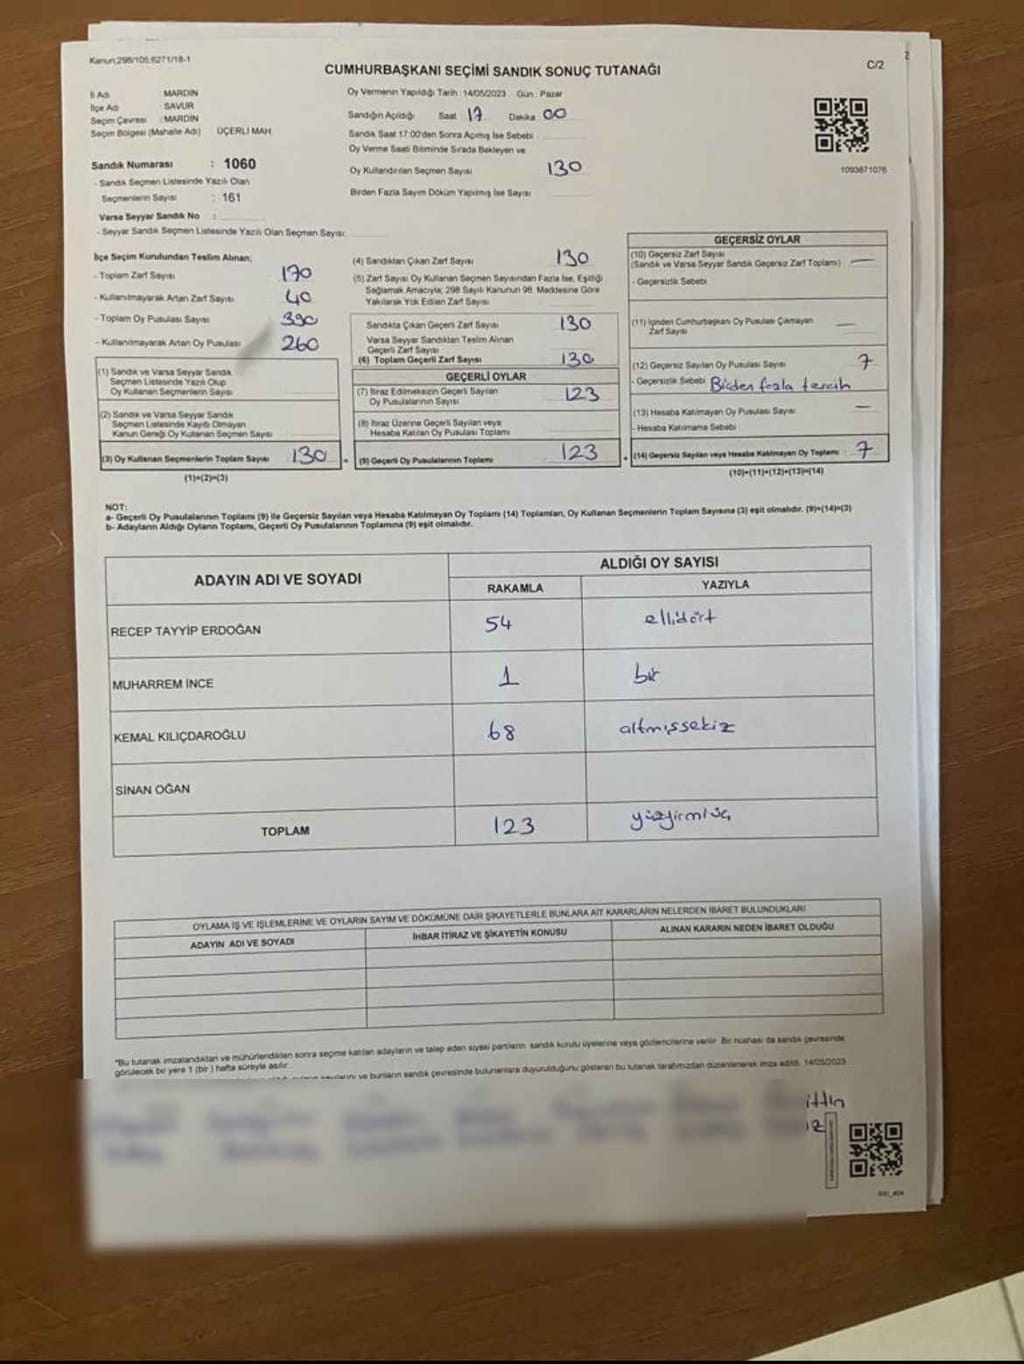 Kanun;298/105;6271/18-1
CUMHURBAŞKANI SEÇİMİ SANDIK SONUÇ TUTANAĞI
C/2
2
İl Adı MARDİN
İlçe Adı : SAVUR
Seçim Çevresi : MARDİN
Seçim Bölgesi (Mahalle Adı) ÜÇERLİ MAH.
Oy Vermenin Yapıldığı Tarih : 14/05/2023 Gün : Pazar
Sandığın Açıldığı Saat 17 Dakika 00
Sandık Saat 17:00'den Sonra Açılmış İse Sebebi
Oy Verme Saati Bitiminde Sırada Bekleyen ve
Oy Kullandırılan Seçmen Sayısı 130
Birden Fazla Sayım Döküm Yapılmış İse Sayısı
1093871076
Sandık Numarası : 1060
- Sandık Seçmen Listesinde Yazılı Olan
Seçmenlerin Sayısı : 161
Varsa Seyyar Sandık No :
- Seyyar Sandık Seçmen Listesinde Yazılı Olan Seçmen Sayısı:
İlçe Seçim Kurulundan Teslim Alınan;
- Toplam Zarf Sayısı 170
- Kullanılmayarak Artan Zarf Sayısı 40
- Toplam Oy Pusulası Sayısı 390
- Kullanılmayarak Artan Oy Pusulası 260
(1) Sandık ve Varsa Seyyar Sandık
Seçmen Listesinde Yazılı Olup
Oy Kullanan Seçmenlerin Sayısı
(2) Sandık ve Varsa Seyyar Sandık
Seçmen Listesinde Kayıtlı Olmayan
Kanun Gereği Oy Kullanan Seçmen Sayısı
(3) Oy Kullanan Seçmenlerin Toplam Sayısı 130
(1)+(2)=(3)
(4) Sandıktan Çıkan Zarf Sayısı 130
(5) Zarf Sayısı Oy Kullanan Seçmen Sayısından Fazla İse, Eşitliği
Sağlamak Amacıyla; 298 Sayılı Kanunun 98. Maddesine Göre
Yakılarak Yok Edilen Zarf Sayısı
Sandıkta Çıkan Geçerli Zarf Sayısı 130
Varsa Seyyar Sandıktan Teslim Alınan
Geçerli Zarf Sayısı
(6) Toplam Geçerli Zarf Sayısı 130
GEÇERLİ OYLAR
(7) İtiraz Edilmeksizin Geçerli Sayılan
Oy Pusulalarının Sayısı 123
(8) İtiraz Üzerine Geçerli Sayılan veya
Hesaba Katılan Oy Pusulası Toplamı
(9) Geçerli Oy Pusulalarının Toplamı 123
GEÇERSİZ OYLAR
(10) Geçersiz Zarf Sayısı
(Sandık ve Varsa Seyyar Sandık Geçersiz Zarf Toplamı) —
- Geçersizlik Sebebi
(11) İçinden Cumhurbaşkanı Oy Pusulası Çıkmayan
Zarf Sayısı —
(12) Geçersiz Sayılan Oy Pusulası Sayısı 7
- Geçersizlik Sebebi Birden fazla tercih
(13) Hesaba Katılmayan Oy Pusulası Sayısı —
- Hesaba Katılmama Sebebi
(14) Geçersiz Sayılan veya Hesaba Katılmayan Oy Toplamı : 7
(10)+(11)+(12)+(13)=(14)
NOT:
a- Geçerli Oy Pusulalarının Toplamı (9) ile Geçersiz Sayılan veya Hesaba Katılmayan Oy Toplamı (14) Toplamları, Oy Kullanan Seçmenlerin Toplam Sayısına (3) eşit olmalıdır. (9)+(14)=(3)
b- Adayların Aldığı Oyların Toplamı, Geçerli Oy Pusulalarının Toplamına (9) eşit olmalıdır.
ADAYIN ADI VE SOYADI ALDIĞI OY SAYISI
RAKAMLA YAZIYLA
RECEP TAYYİP ERDOĞAN 54 ellidört
MUHARREM İNCE 1 bir
KEMAL KILIÇDAROĞLU 68 altmışsekiz
SİNAN OĞAN
TOPLAM 123 yüzyirmiüç
OYLAMA İŞ VE İŞLEMLERİNE VE OYLARIN SAYIM VE DÖKÜMÜNE DAİR ŞİKAYETLERLE BUNLARA AİT KARARLARIN NELERDEN İBARET BULUNDUKLARI
ADAYIN ADI VE SOYADI İHBAR İTİRAZ VE ŞİKAYETİN KONUSU ALINAN KARARIN NEDEN İBARET OLDUĞU
*Bu tutanak imzalandıktan ve mühürlendikten sonra seçime katılan adayların ve talep eden siyasi partilerin sandık kurulu üyelerine veya gözlemcilerine verilir. Bir nüshası da sandık çevresinde
görülecek bir yere 1 (bir) hafta süreyle asılır.
ve bunların sandık çevresinde bulunanlara duyurulduğunu gösteren bu tutanak tarafımızdan düzenlenerek imza edildi. 14/05/2023
ittin
12